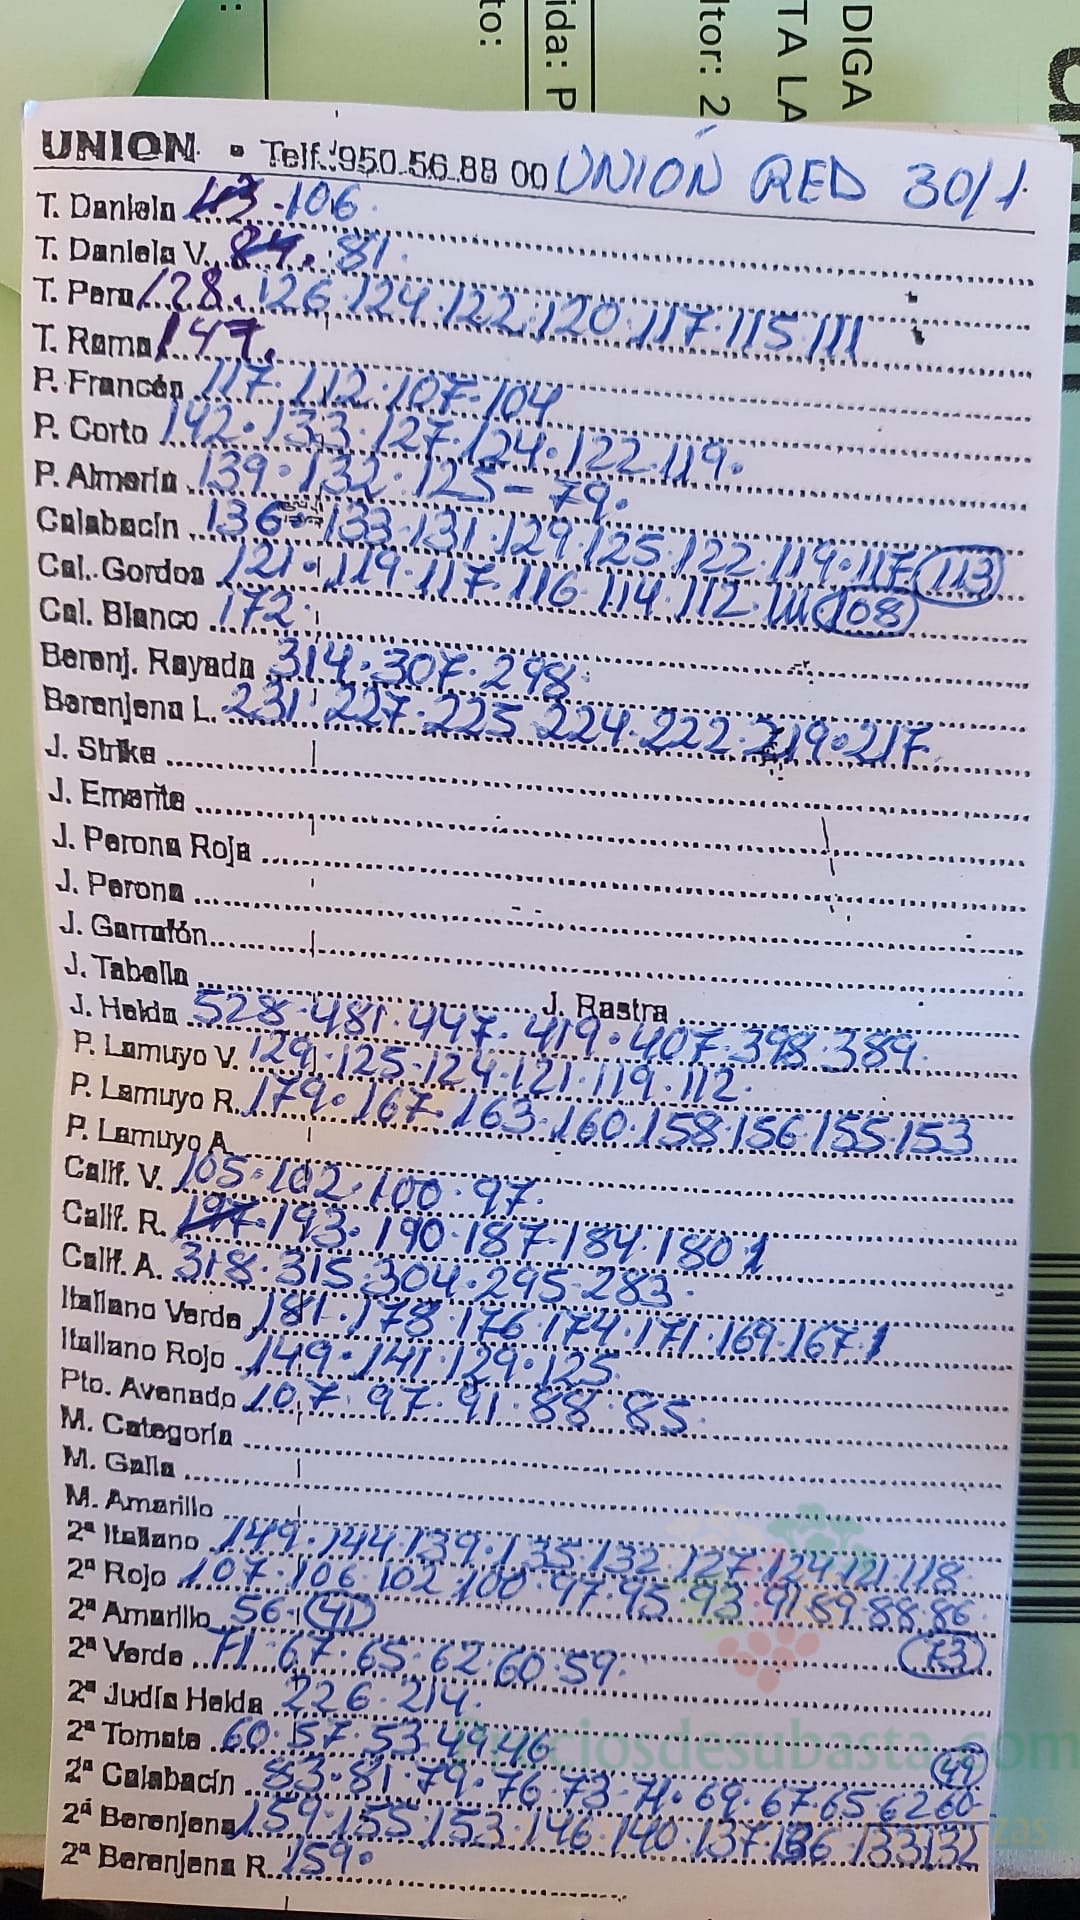 DIGA
TA LA
ltor: 2
ida: P
to:
UNION. • Telf.: 950.56.88 00 UNIÓN RED 30/1
T. Daniela 106.
T. Daniela V. 84. 81.
T. Pera 128. 126. 124. 122. 120. 117. 115. 111
T. Rama 147.
P. Francés 117. 112. 107. 104
P. Corto 142. 133. 127. 124. 122. 119.
P. Almería 139. 132. 125 - 79.
Calabacín 136 133. 131. 129. 125. 122. 119. 117. 113
Cal. Gordos 121. 119. 117. 116. 114. 112. 111 108
Cal. Blanco 172.
Berenj. Rayada 314. 307. 298.
Berenjena L. 231. 227. 225. 224. 222. 219. 217.
J. Strike
J. Emerite
J. Perona Roja
J. Perona
J. Garrafón
J. Tabella J. Rastra
J. Helda 528. 481. 447. 419. 407. 398. 389.
P. Lamuyo V. 129. 125. 124. 121. 119. 112.
P. Lamuyo R. 179. 167. 163. 160. 158. 156. 155. 153
P. Lamuyo A.
Calif. V. 105. 102. 100. 97.
Calif. R. 197. 193. 190. 187. 184. 180 1
Calif. A. 318. 315. 304. 295. 283.
Italiano Verde 181. 178. 176. 174. 171. 169. 167. 1
Italiano Rojo 149. 141. 129. 125
Pto. Avenado 107. 97. 91. 88. 85.
M. Categoría
M. Galia
M. Amarillo
2ª Italiano 149. 144. 139. 135. 132. 127. 124. 121. 118.
2ª Rojo 107. 106. 102. 100. 97. 95. 93. 91. 89. 88. 86. 73
2ª Amarillo 56. 41
2ª Verde 71. 67. 65. 62. 60. 59.
2ª Judía Helda 226. 214.
2ª Tomate 60. 57. 53. 49. 46 49
2ª Calabacín 83. 81. 79. 76. 73. 71. 69. 67. 65. 62. 60
2ª Berenjena 159. 155. 153. 146. 140. 137. 136 133. 132
2ª Berenjena R. 159.
Preciosdesubasta.com